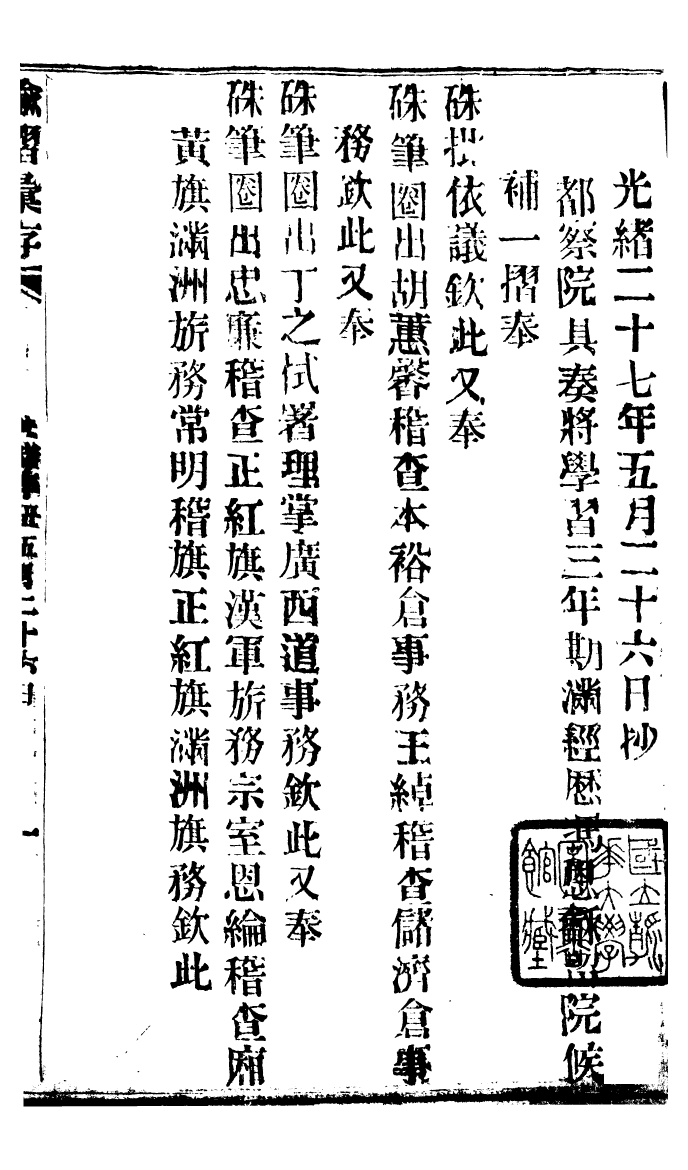 光緒二十七年五月二十六日抄
都察院具奏將學習三年期滿經歷恩 院候
補一摺奉
硃批依議欽此又奉
硃筆圈出胡蕙馨稽查本裕倉事務王綽稽查儲濟倉事
務欽此又奉
硃筆圈出丁之栻署理掌廣西道事務欽此又奉
硃筆圈出忠廉稽查正紅旗漢軍旂務宗室恩綸稽查廂
黃旗滿洲旂務常明稽旗正紅旗滿洲旗務欽此
諭摺彙存
二十六日
一
國立
大學
館藏